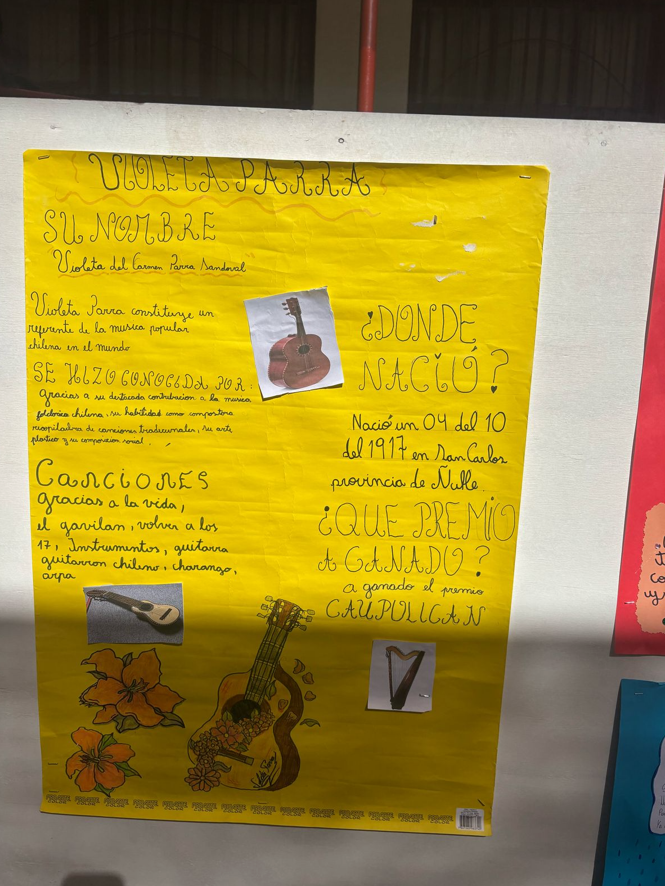 VIOLETA PARRA
SU NOMBRE
Violeta del Carmen Parra Sandoval
Violeta Parra constituye un
referente de la musica popular
chilena en el mundo
SE HIZO CONOCIDA POR:
gracias a su destacada contribucion a la musica
folclorica chilena, su habilidad como compositora
recopiladora de canciones tradicionales, su arte
plastico y su composicion social.
Canciones
gracias a la vida,
el gavilan, volver a los
17, Instrumentos, guitarra
guitarron chileno, charango,
arpa
¿DONDE
NACIÓ?
Nació un 04 del 10
del 1917 en San Carlos
provincia de Ñuble.
¿QUE PREMIO
A GANADO?
a ganado el premio
CAUPULICAN